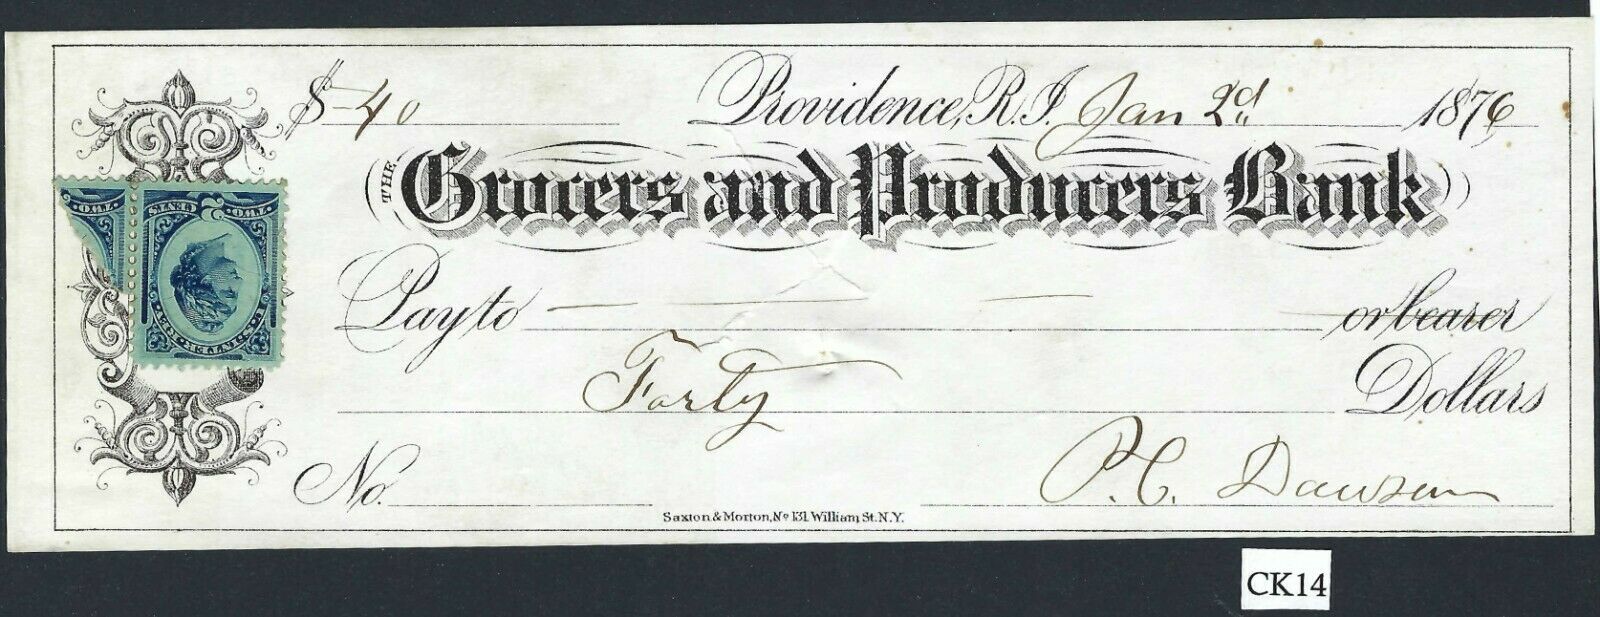 $ 40 Providence, R.I. Jan 2d 1876
THE Grocers and Producers Bank
Pay to or bearer
Forty Dollars
No. P. C. Dawson
Saxton & Morton, No 131 William St. N.Y.
TWO CENTS 2 TWO
U.S. INTER. REV.
TWO
CK14